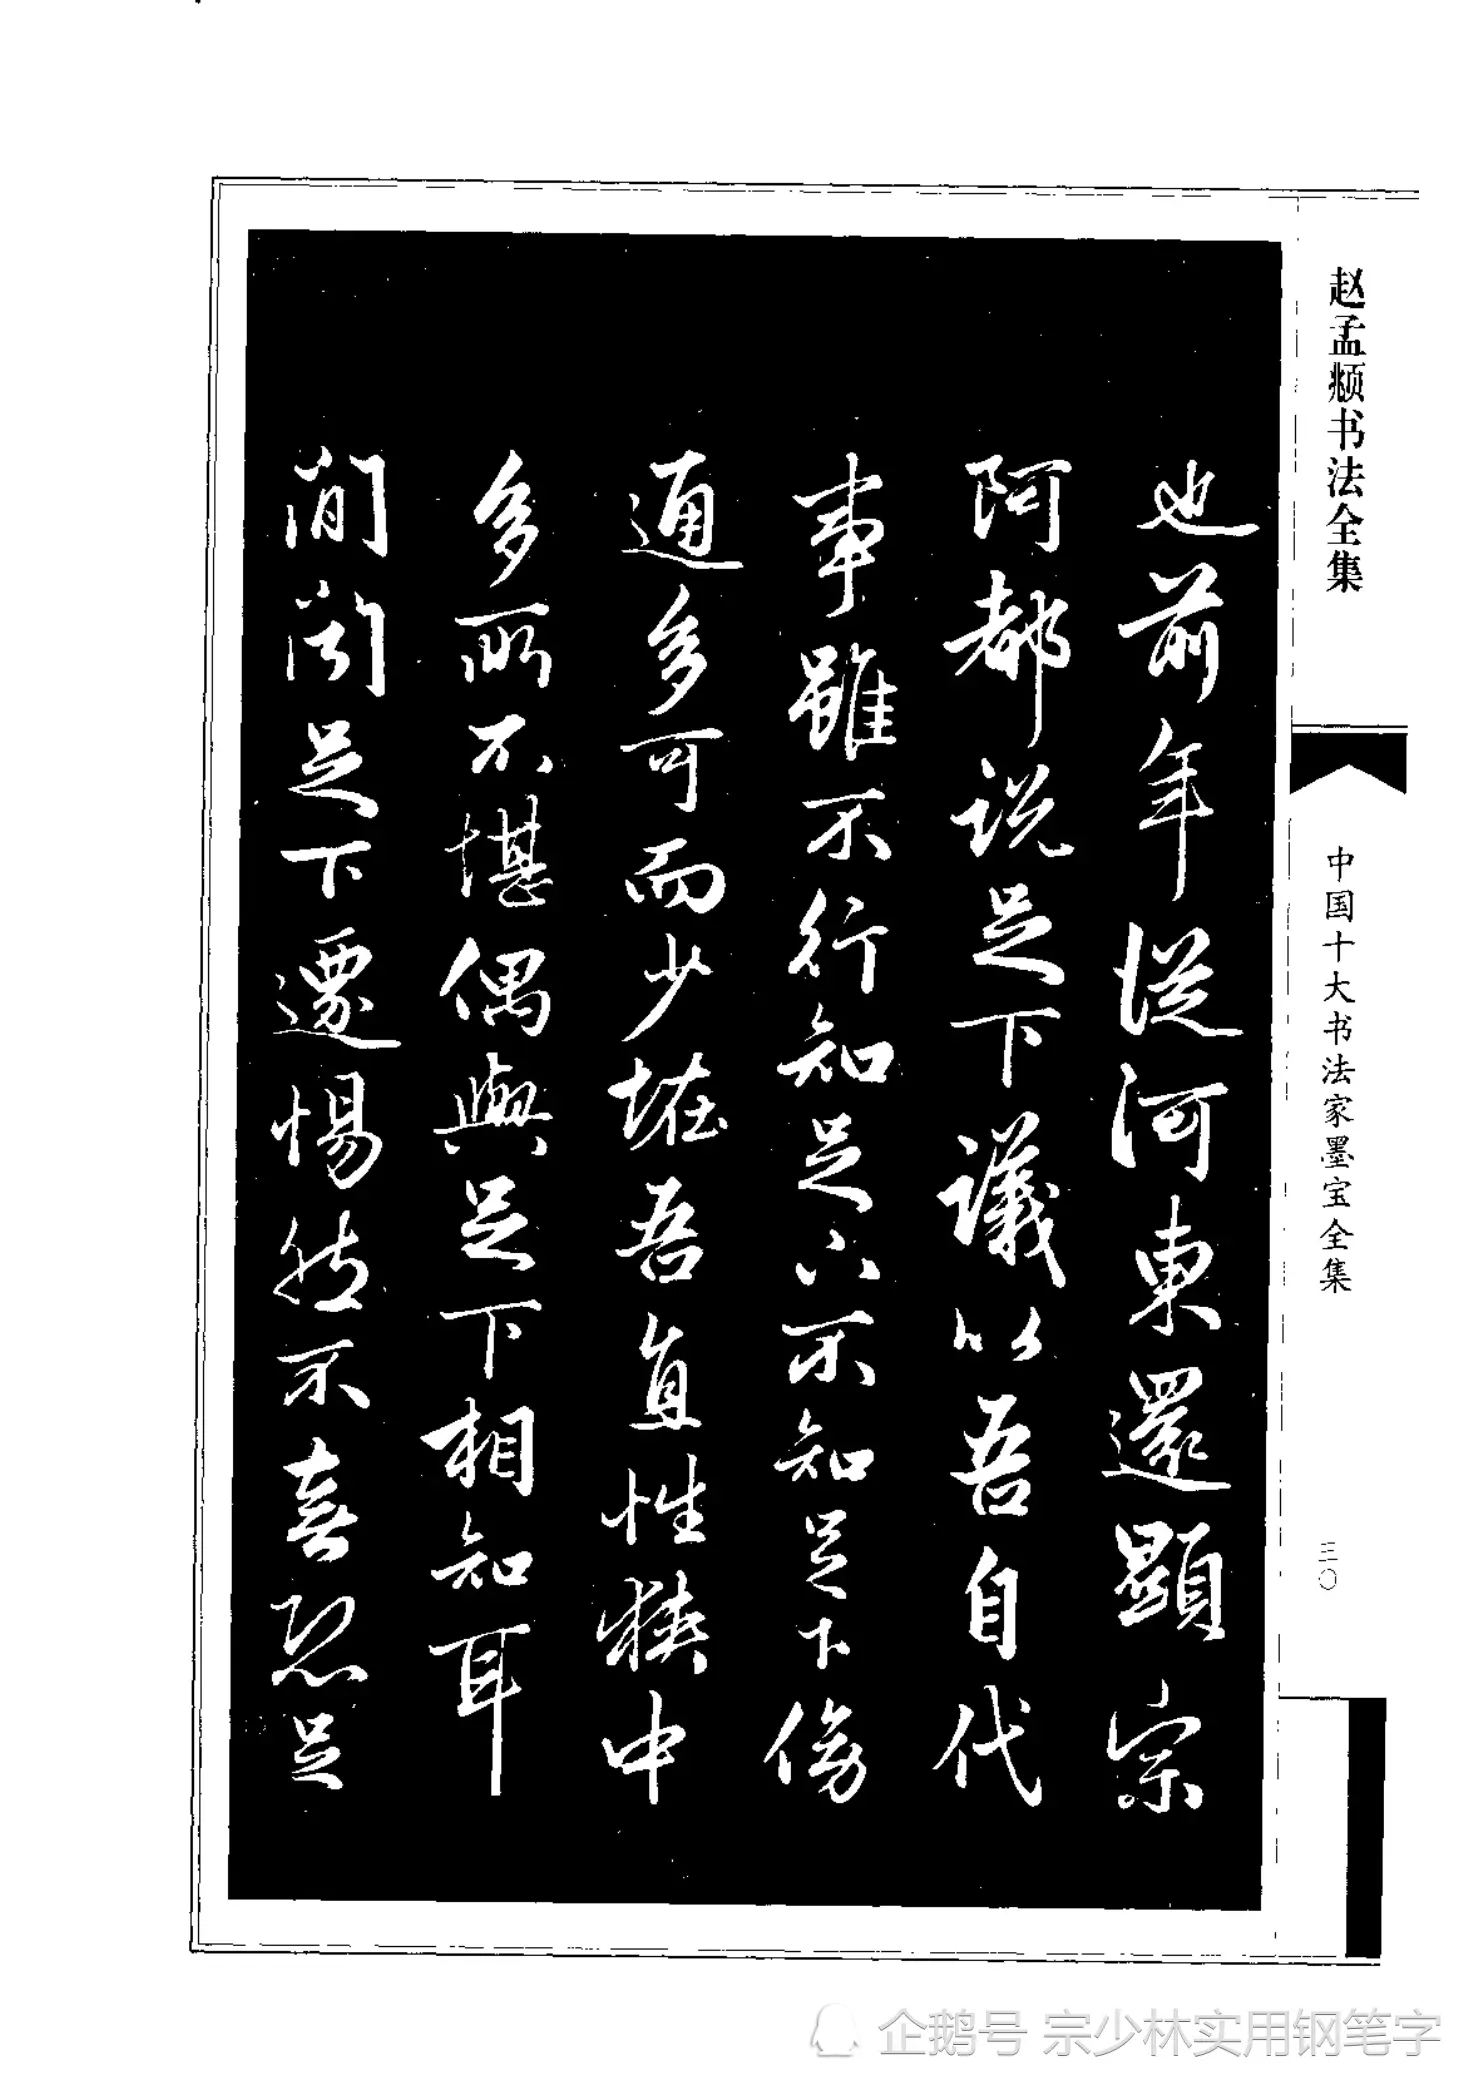 赵孟頫书法全集
中国十大书法家墨宝全集
三〇
也前年從河東還顯宗
阿都説足下議以吾自代
事雖不行知足下不知足下傍
通多可而少恠吾直性狹中
多所不堪偶與足下相知耳
間聞足下遷惕然不喜恐足
企鹅号 宗少林实用钢笔字